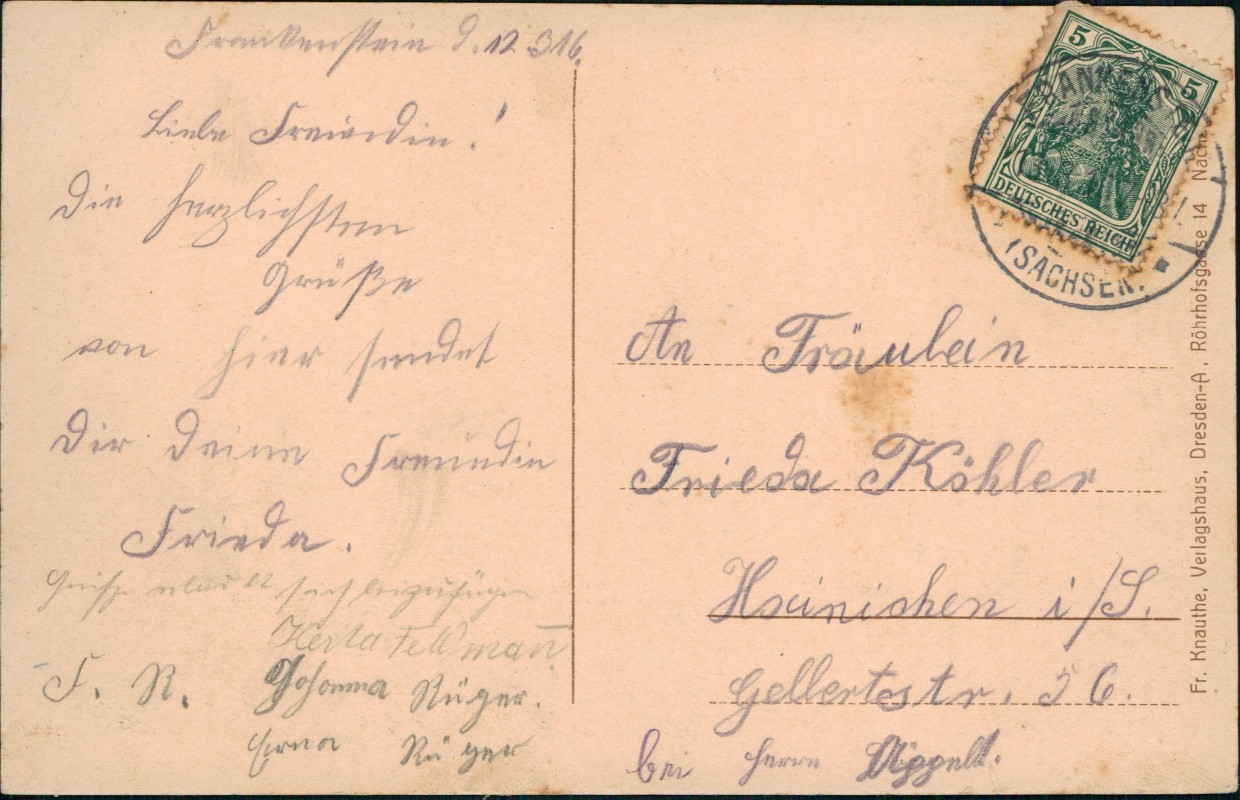 Frankenstein d. 12.3 16.
Liebe Freundin!
Die herzlichsten
Grüße
von hier sendet
Dir Deine Freundin
Frieda.
Grüße erlaubt sich beizufügen
Herta Fellmann
F. R. Johanna Rüger.
Erna Rüger
5 5
DEUTSCHES REICH
(SACHSEN.
An Fräulein
Frieda Köhler
Hainichen i/S.
Gellertstr. 56.
bei Herrn
Fr. Knauthe, Verlagshaus, Dresden-A, Röhrhofsgasse 14